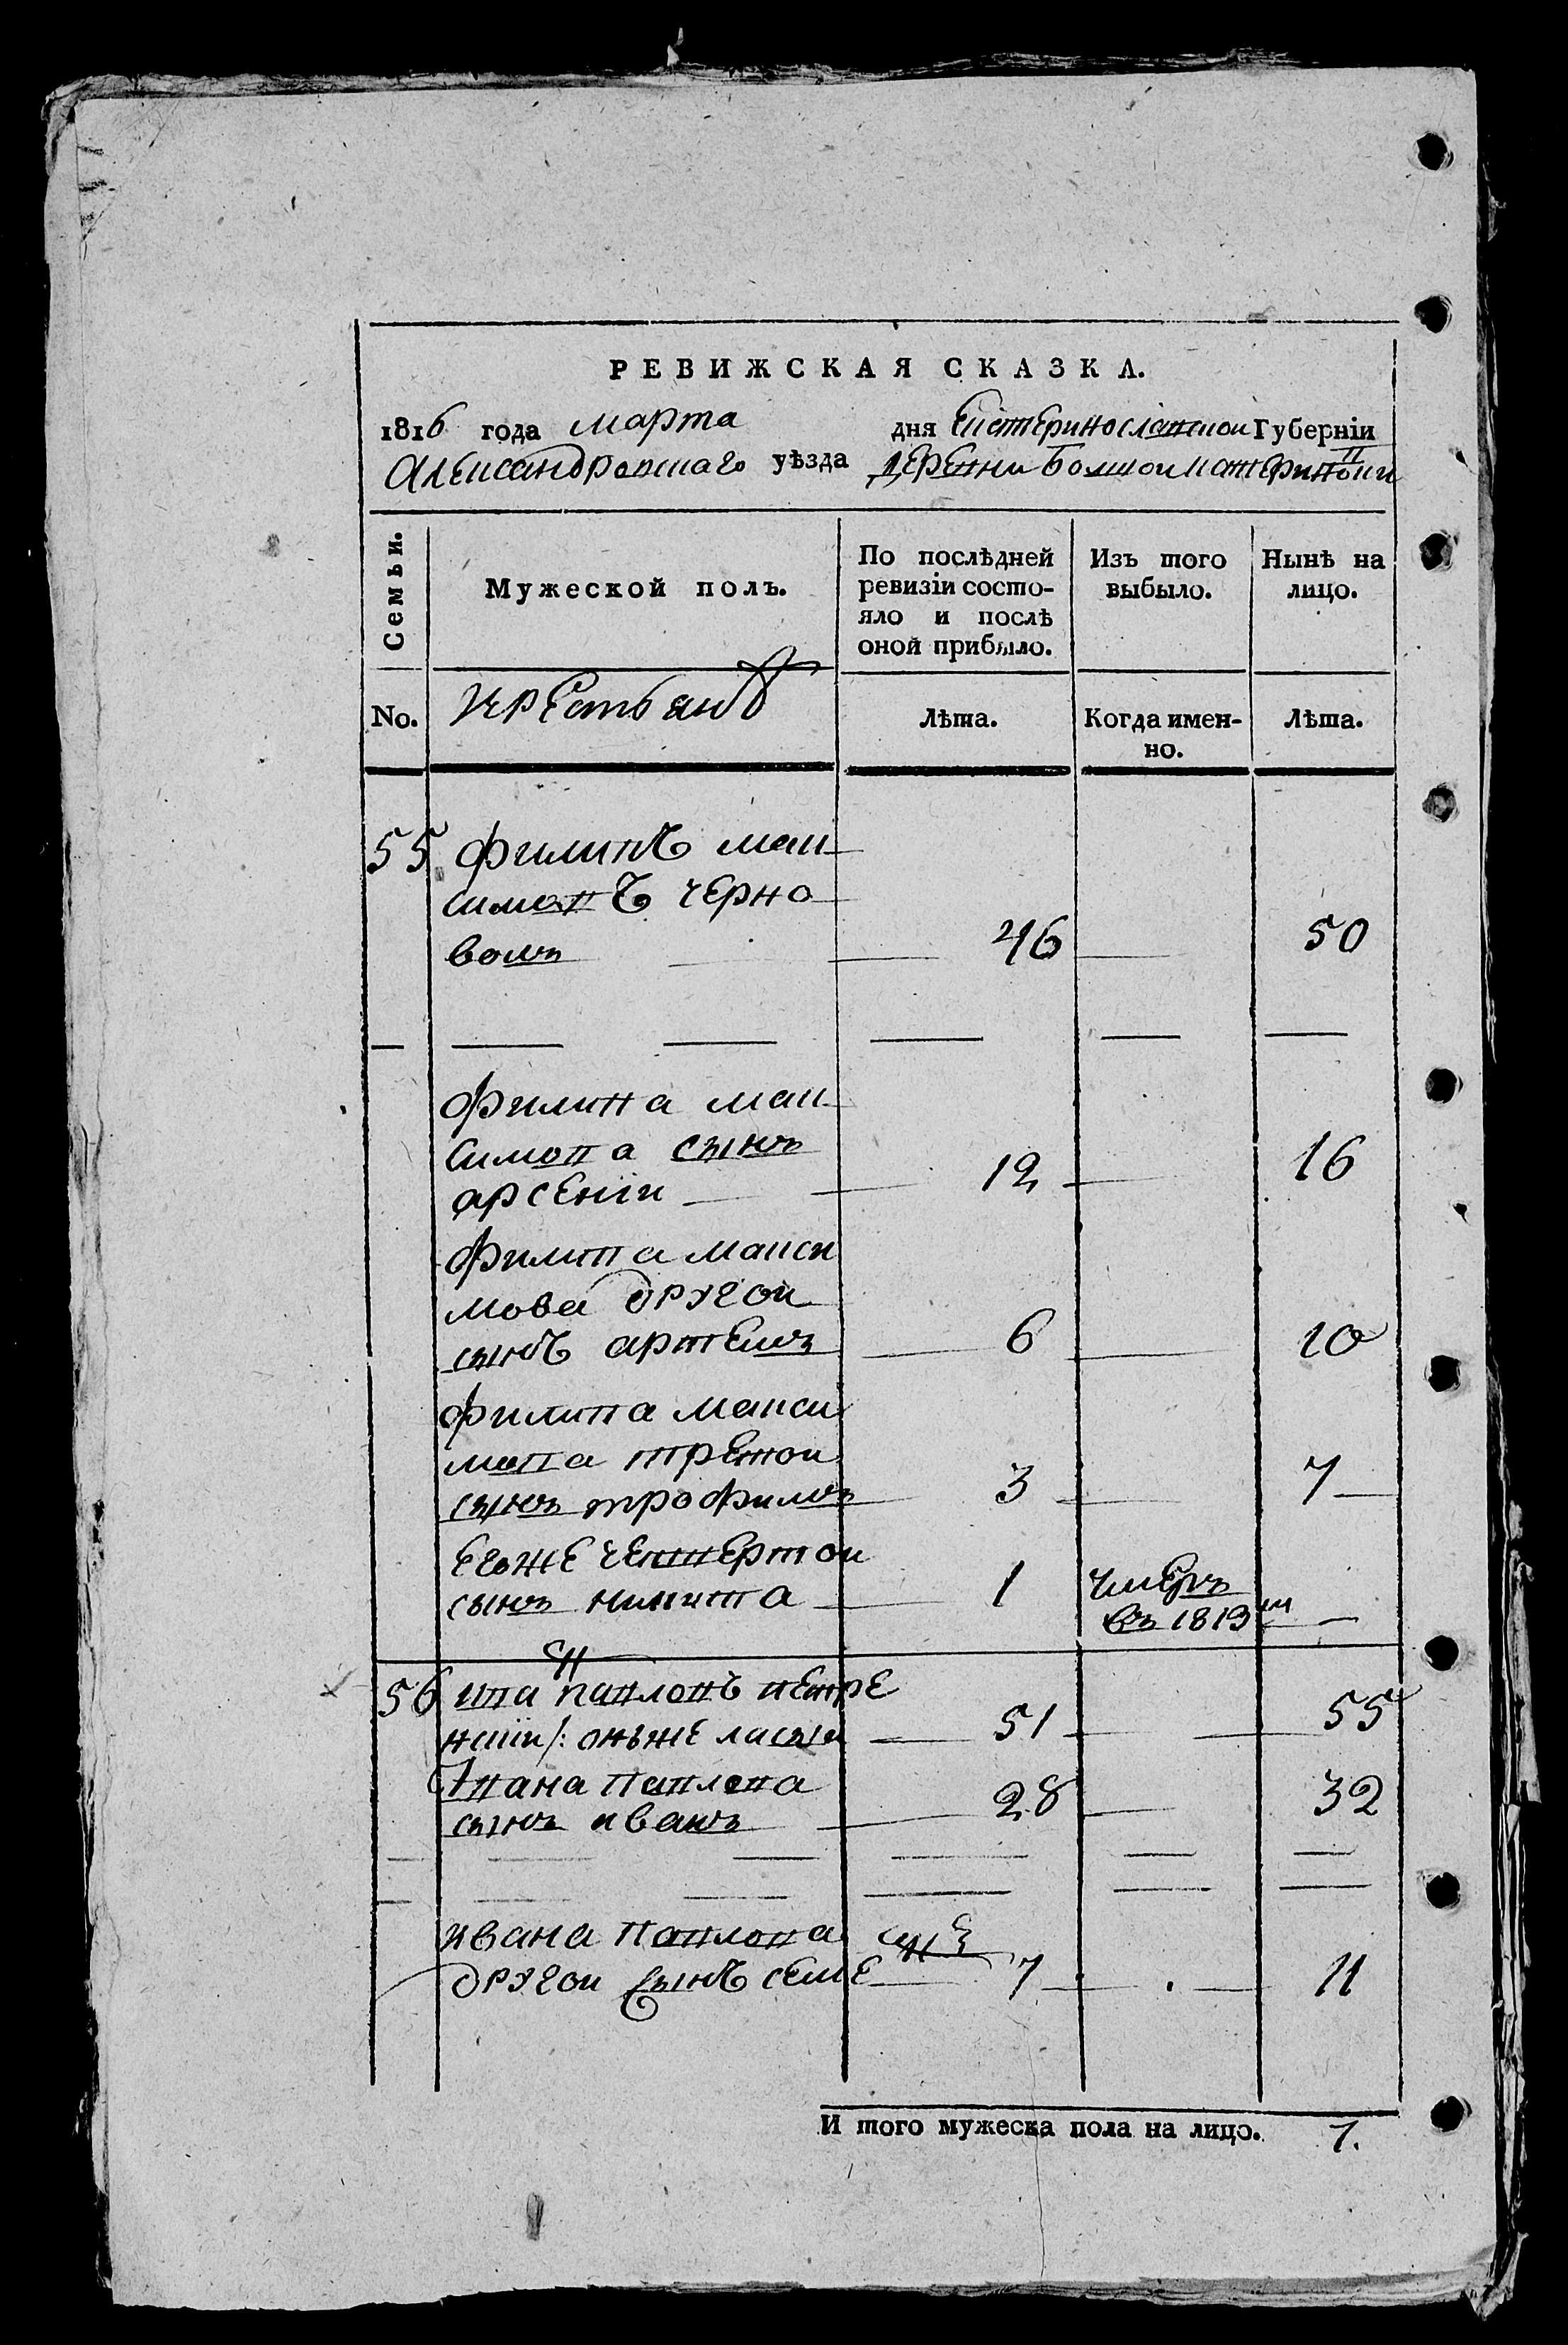 РЕВИЖСКАЯ СКАЗКА.
1816 года марта дня Екатеринославской Губерніи
Александровскаго уѣзда деревни Болшой Катериновки
Семьи. Мужеской полъ. По послѣдней ревизіи состояло и послѣ оной прибыло. Изъ того выбыло. Нынѣ на лицо.
No. Крестьянъ Лѣта. Когда именно. Лѣта.
55 Филипъ Мак
симовъ Черно
волъ 46 50
Филипа Мак
симова сынъ
Арсеній 12 16
Филипа Макси
мова другой
сынъ Артемъ 6 10
Филипа Макси
мова третой
сынъ Трофимъ 3 7
Егоже четвертой
сынъ Никита 1 умеръ
въ 1813м
56 Ива Павловъ Петре
нкіи /: онъже 51 55
Ивана Павлова
сынъ Иванъ 28 32
Ивана Павлова
другой сынъ Семе 7 11
И того мужеска пола на лицо. 7.